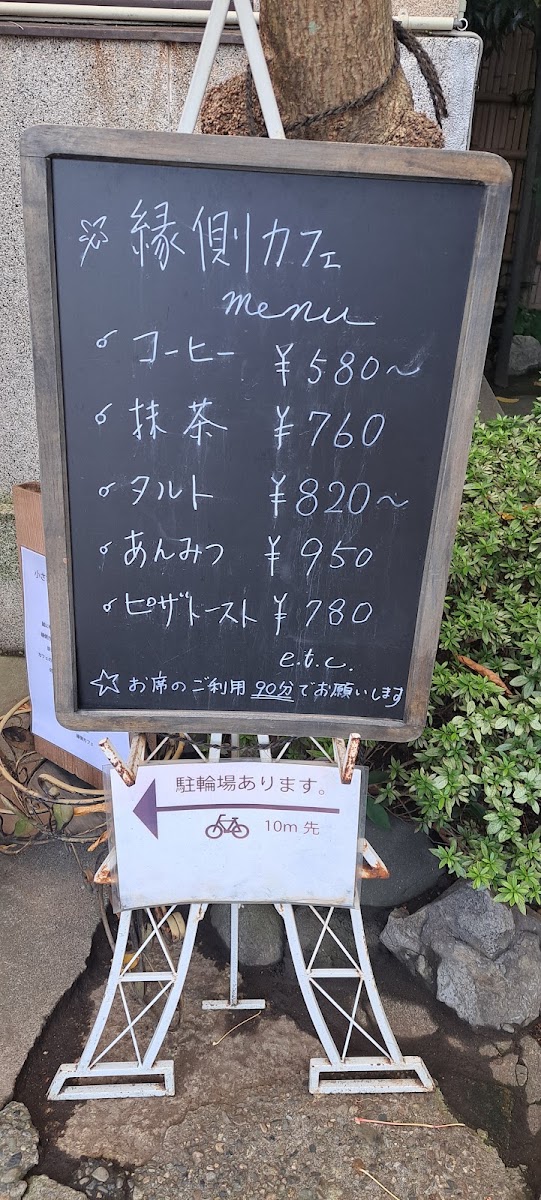 ☆ 縁側カフェ
menu
コーヒー ¥580～
抹茶 ¥760
タルト ¥820～
あんみつ ¥950
ピザトースト ¥780
e.t.c.
☆お席のご利用90分でお願いします
駐輪場あります。
10m 先
小さ